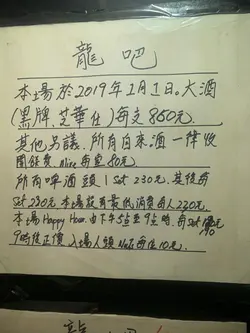 龍吧
本場於2019年1月1日。大酒
(黑牌、芝華仕)每支850元.
其他另議.所有自來酒一律收
開餅費 Mixe每壺80元.
所有啤酒頭1 Set 230元.其後每
Set 230元.本場最低消費每人230元.
本場Happy Hour.由下午5時至9時.每Set
9時後正價.入場人頭 每位10元.
龍吧